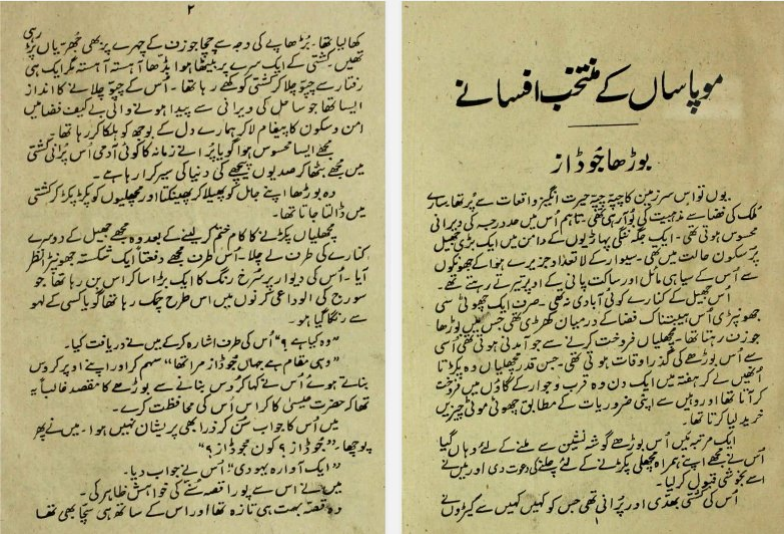 موپاساں کے منتخب افسانے
بوڑھا جُوڈاز
یوں تو اس سرزمین کا چپّہ چپّہ حیرت انگیز واقعات سے پُر تھا۔ سارے
ملک کی فضا سے مذہبیت کی بُو آ رہی تھی۔ تاہم اُس میں حد درجہ کی ویرانی
محسوس ہوتی تھی۔ ایک جگہ ننگی پہاڑیوں کے دامن میں ایک بڑی جھیل
پرسکون حالت میں تھی۔ سیوار کے لاتعداد جزیرے ہوا کے جھونکوں
سے اُس کے سیاہی مائل اور ساکت پانی کے اوپر تیرتے رہتے تھے۔
اس جھیل کے کنارے کوئی آبادی نہ تھی۔ صرف ایک چھوٹی سی
جھونپڑی اُس ہیبتناک فضا کے درمیان کھڑی تھی جس میں بوڑھا
جوزن رہتا تھا۔ مچھلیاں فروخت کرنے سے جو آمدنی ہوتی تھی اُسی
سے اُس بوڑھے کی گذر اوقات ہوتی تھی۔ جس قدر مچھلیاں وہ پکڑتا
اُنھیں لے کر ہفتہ میں ایک دن وہ قرب و جوار کے گاؤں میں فروخت
کر آتا تھا اور وہیں سے اپنی ضروریات کے مطابق چھوٹی موٹی چیزیں
خرید لیا کرتا تھا۔
ایک مرتبہ میں اُس بوڑھے گوشہ نشین سے ملنے کے لئے وہاں گیا
اُس نے مجھے اپنے ہمراہ مچھلی پکڑنے کے لئے چلنے کی دعوت دی اور میں نے
اسے بخوشی قبول کر لیا۔
اُس کی کشتی بھدّی اور پُرانی تھی جس کو کہیں کہیں سے کیڑوں نے
۲
کھا لیا تھا۔ بُڑھاپے کی وجہ سے چچا جوزن کے چہرے پر بھی جُھرّیاں پڑ رہی
تھیں۔ کشتی کے ایک سرے پر بیٹھا ہوا بڈھا آہستہ آہستہ مگر ایک ہی
رفتار سے چپّو چلا کر کشتی کو کھے رہا تھا۔ اُس کے چپّو چلانے کا انداز
ایسا تھا جو ساحل کی ویرانی سے پیدا ہونے والی بے کیف فضا میں
امن و سکون کا پیغام لا کر ہمارے دل کے بوجھ کو ہلکا کر رہا تھا۔
مجھے ایسا محسوس ہوا گویا پُرانے زمانہ کا کوئی آدمی اُس پُرانی کشتی
میں مجھے بٹھا کر صدیوں پیچھے کی دنیا کی سیر کرا رہا ہے۔
وہ بوڑھا اپنے جال کو پھیلا کر پھینکتا اور مچھلیوں کو پکڑ پکڑ کر کشتی
میں ڈالتا جاتا تھا۔
مچھلیاں پکڑنے کا کام ختم کر لینے کے بعد وہ مجھے جھیل کے دوسرے
کنارے کی طرف لے چلا۔ اُس طرف مجھے دفعتاً ایک شکستہ جھونپڑا نظر
آیا۔ اُس کی دیوار پر سُرخ رنگ کا ایک بڑا سا کراس بن رہا تھا جو
سورج کی الوداعی کرنوں میں اس طرح چمک رہا تھا گویا کسی کے لہو
سے رنگا گیا ہو۔
”وہ کیا ہے؟“ اُس کی طرف اشارہ کر کے میں نے دریافت کیا۔
”وہی مقام ہے جہاں جُوڈاز مرا تھا“ سہم کر اور اپنے اوپر کروس
بناتے ہوئے اُس نے کہا۔ کروس بنانے سے بوڑھے کا مقصد غالباً یہ
تھا کہ حضرت عیسیٰ کا کراس اُس کی محافظت کرے۔
میں اُس کا جواب سُن کر ذرا بھی پریشان نہیں ہوا۔ میں نے پھر
پوچھا۔ ”جُوڈاز؟ کون جُوڈاز؟“
”ایک آوارہ یہودی“ اُس نے جواب دیا۔
میں نے اس سے پورا قصہ سُننے کی خواہش ظاہر کی۔
وہ قصّہ بہت ہی تازہ تھا اور اس کے ساتھ ہی سچّا بھی تھا